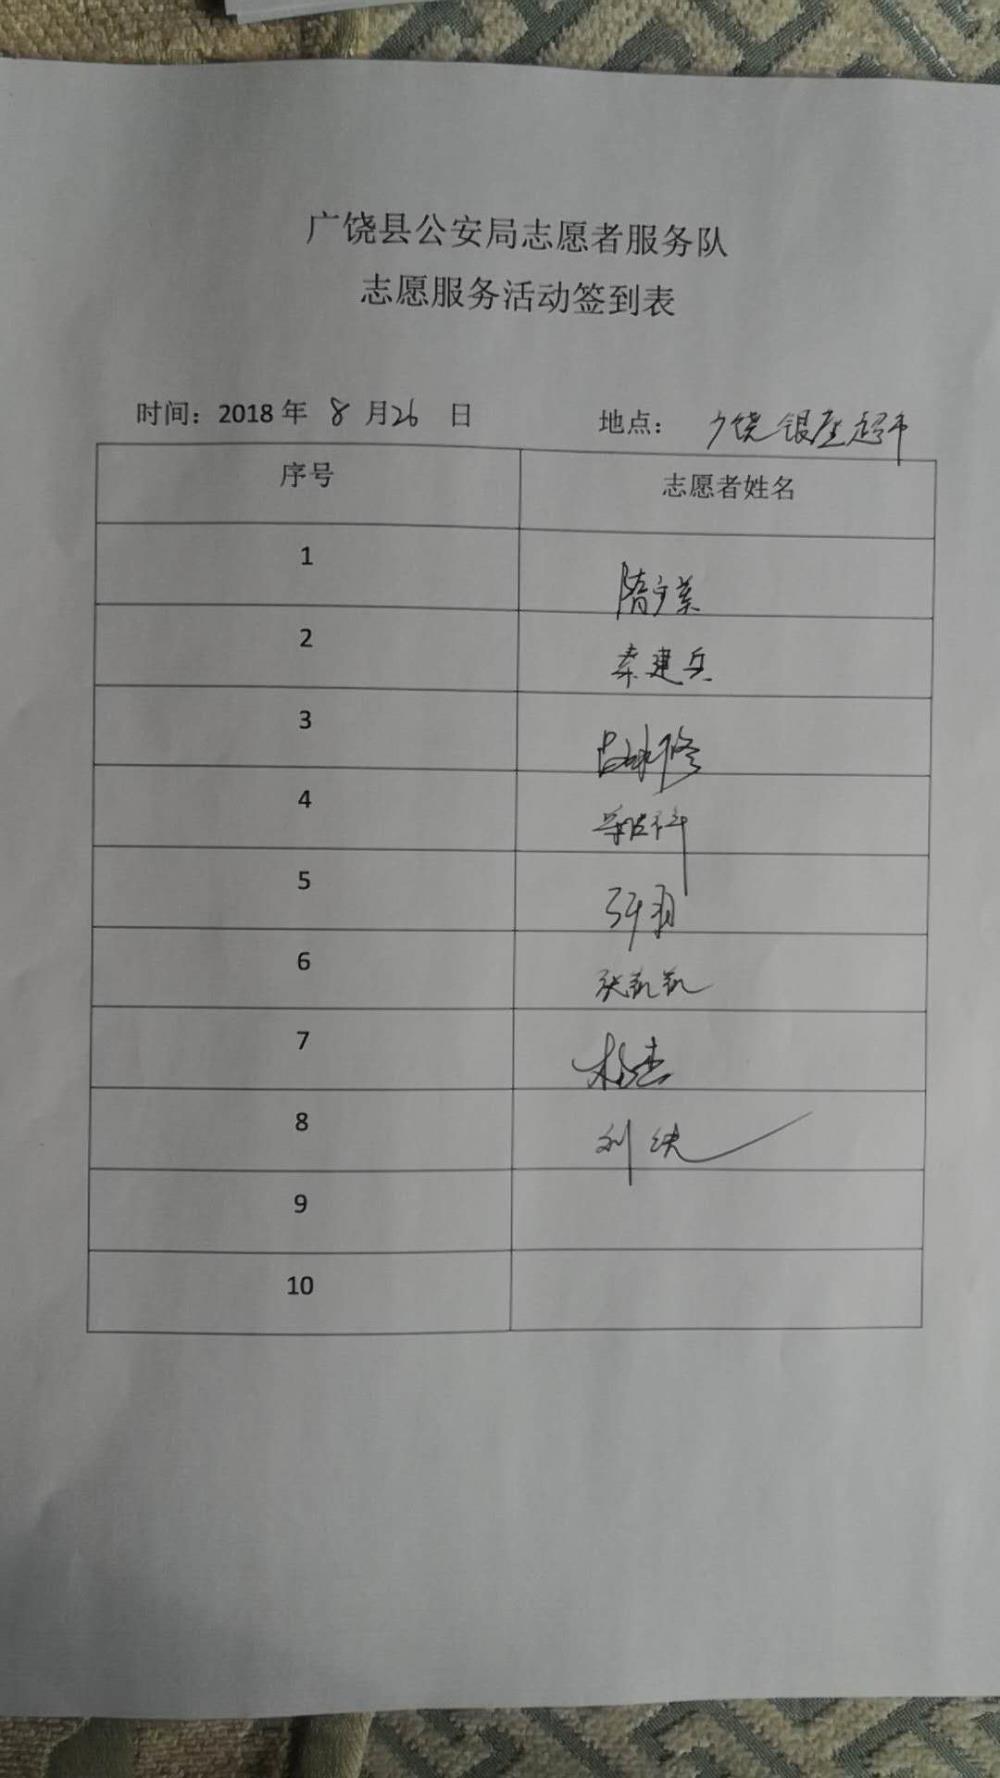 广饶县公安局志愿者服务队
志愿服务活动签到表
时间：2018 年 8 月26 日 地点： 广饶银座超市
序号 志愿者姓名
1
2 秦建兵
3
4
5
6 张凯凯
7 杨杰
8 刘
9
10